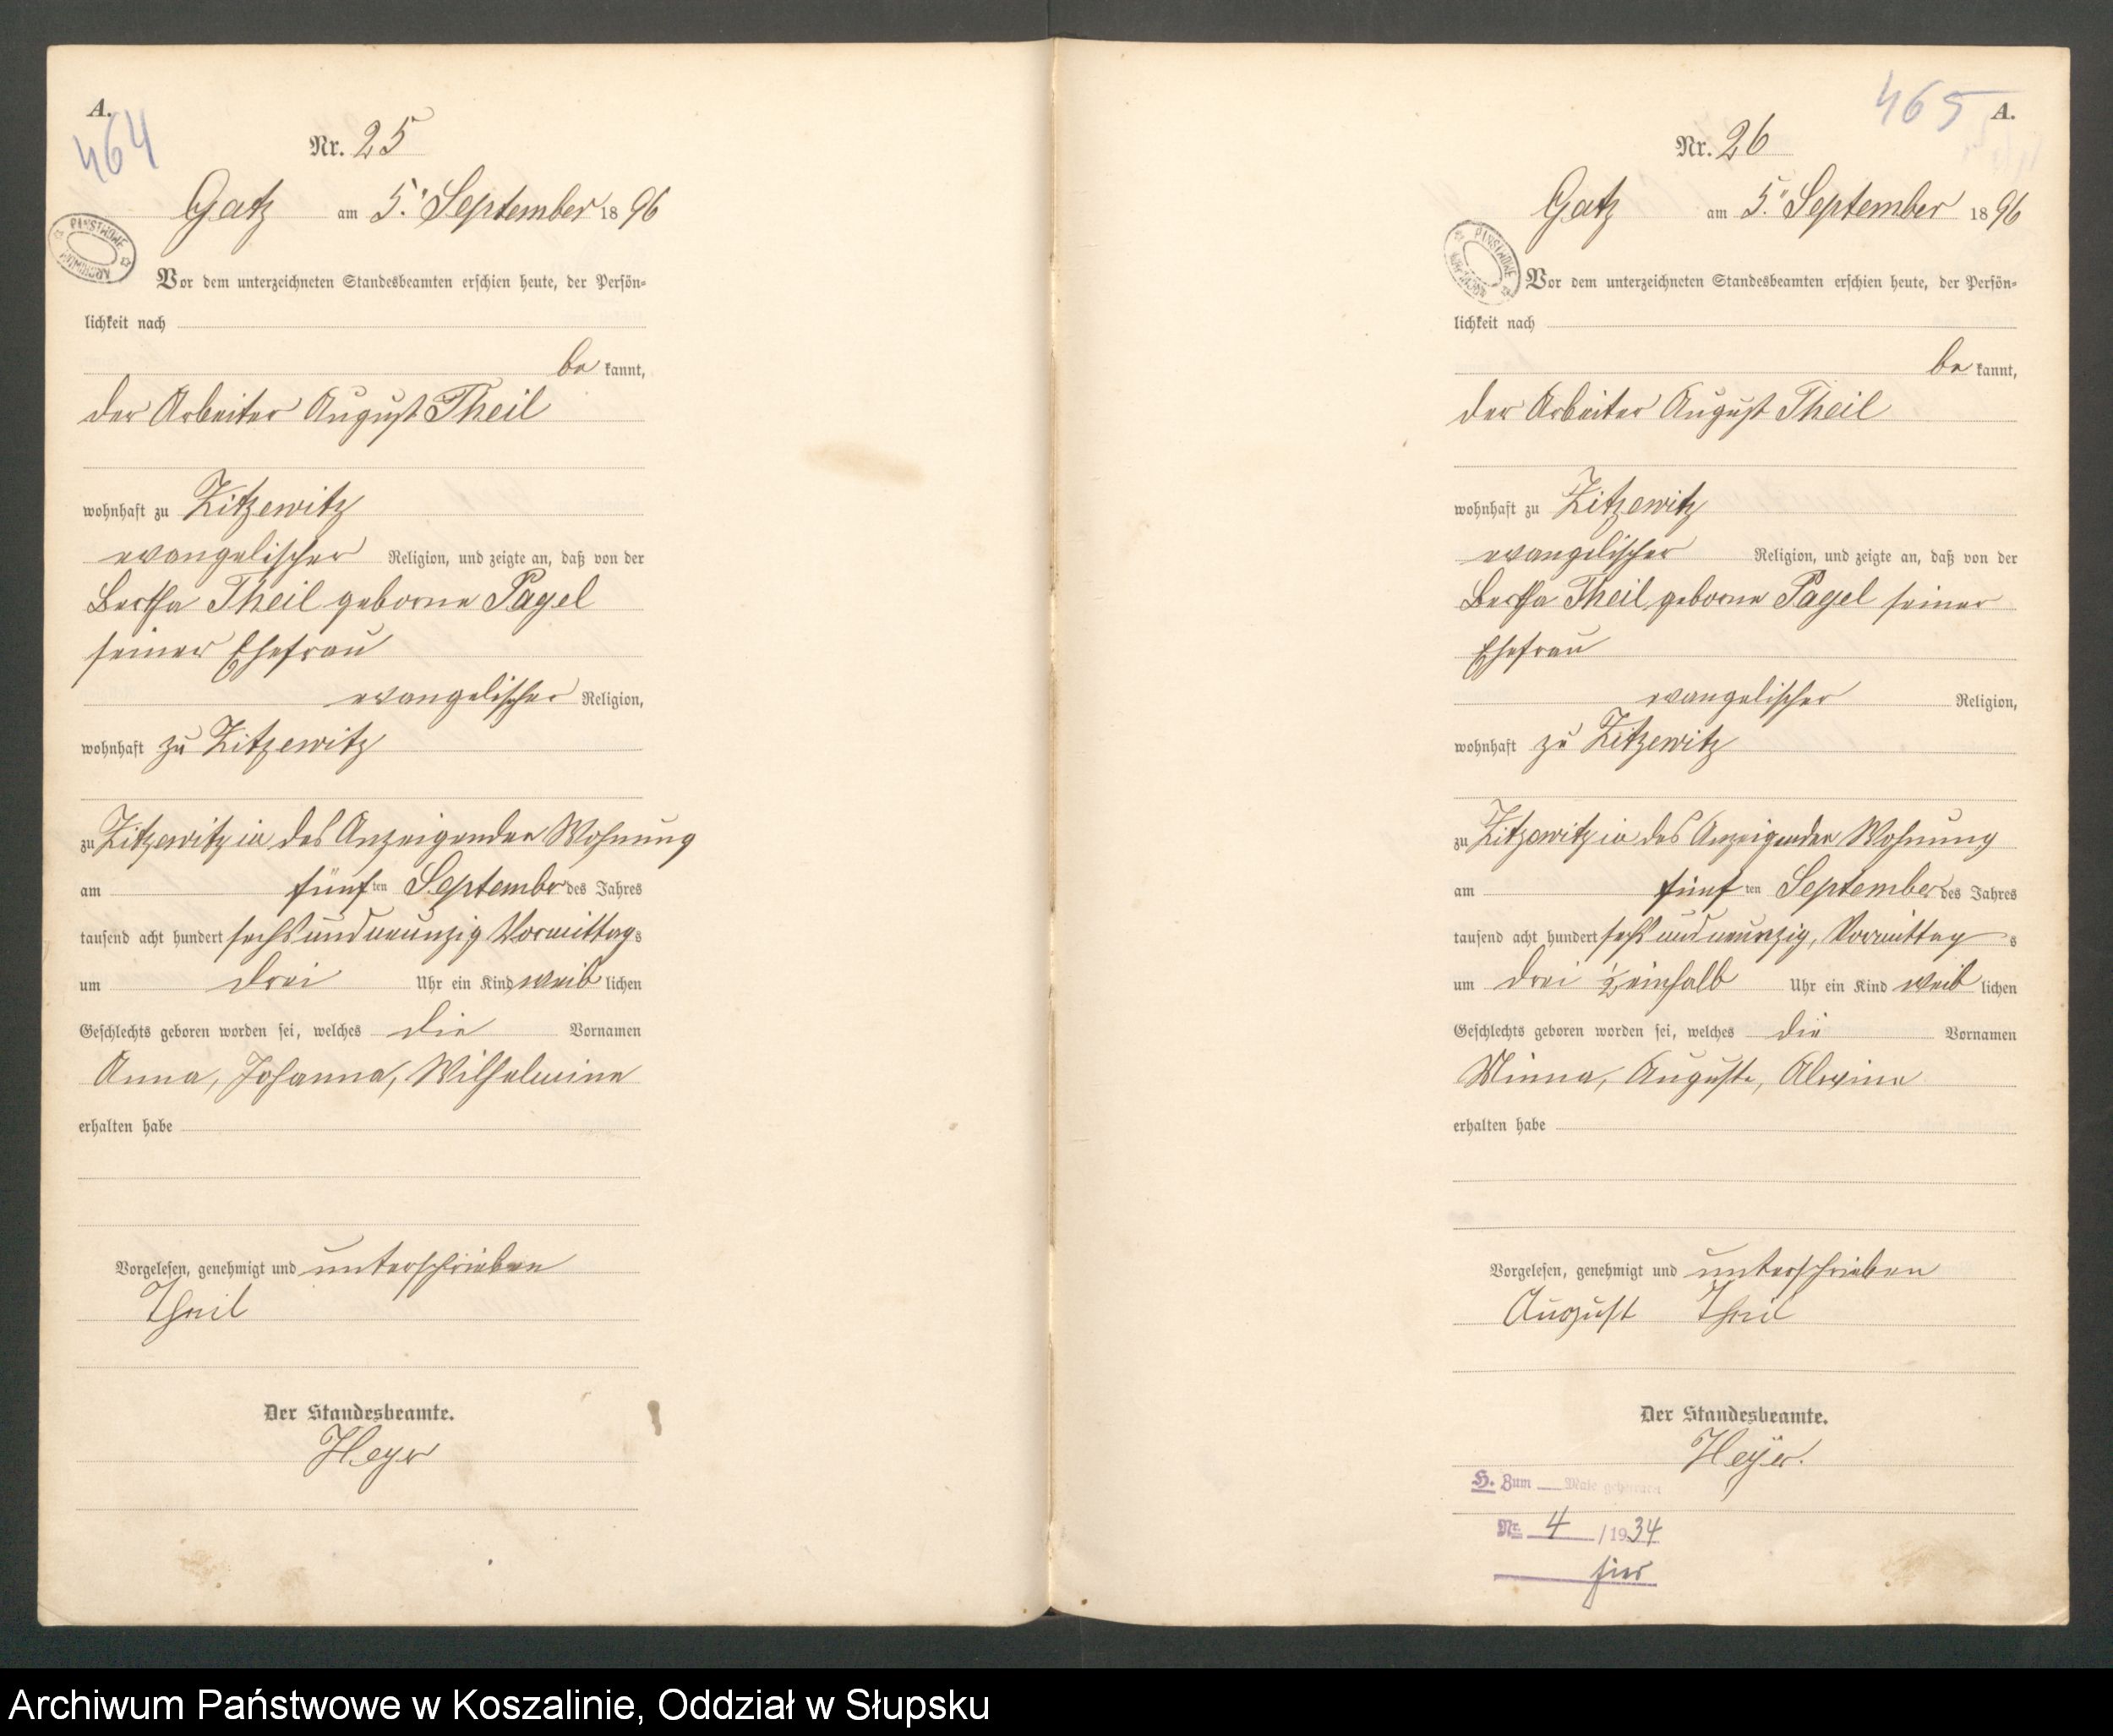 A.
464
Nr. 25
Gatz am 5. September 1896
PAŃSTWOWE ARCHIWUM
Vor dem unterzeichneten Standesbeamten erschien heute, der Persön-
lichkeit nach
be kannt,
der Arbeiter August Theil
wohnhaft zu Zitzewitz
evangelischer Religion, und zeigte an, daß von der
Bertha Theil geborne Pagel
seiner Ehefrau
evangelischer Religion,
wohnhaft zu Zitzewitz
zu Zitzewitz in des Anzeigenden Wohnung
am fünf ten September des Jahres
tausend acht hundert sechs und neunzig Vormittags
um drei Uhr ein Kind weib lichen
Geschlechts geboren worden sei, welches die Vornamen
Anna, Johanna, Wilhelmine
erhalten habe
Vorgelesen, genehmigt und unterschrieben
Theil
Der Standesbeamte.
Heyer
465
A.
Nr. 26
Gatz am 5. September 1896
PAŃSTWOWE ARCHIWUM
Vor dem unterzeichneten Standesbeamten erschien heute, der Persön-
lichkeit nach
be kannt,
der Arbeiter August Theil
wohnhaft zu Zitzewitz
evangelischer Religion, und zeigte an, daß von der
Bertha Theil geborne Pagel seiner
Ehefrau
evangelischer Religion,
wohnhaft zu Zitzewitz
zu Zitzewitz in des Anzeigenden Wohnung
am fünf ten September des Jahres
tausend acht hundert sechs und neunzig, Vormittag s
um drei ½ einhalb Uhr ein Kind weib lichen
Geschlechts geboren worden sei, welches die Vornamen
Minna, Auguste, Alwine
erhalten habe
Vorgelesen, genehmigt und unterschrieben
August Theil
Der Standesbeamte.
Heyer.
H. Zum Male geheiratet
Nr. 4 / 1934
hier
Archiwum Państwowe w Koszalinie, Oddział w Słupsku